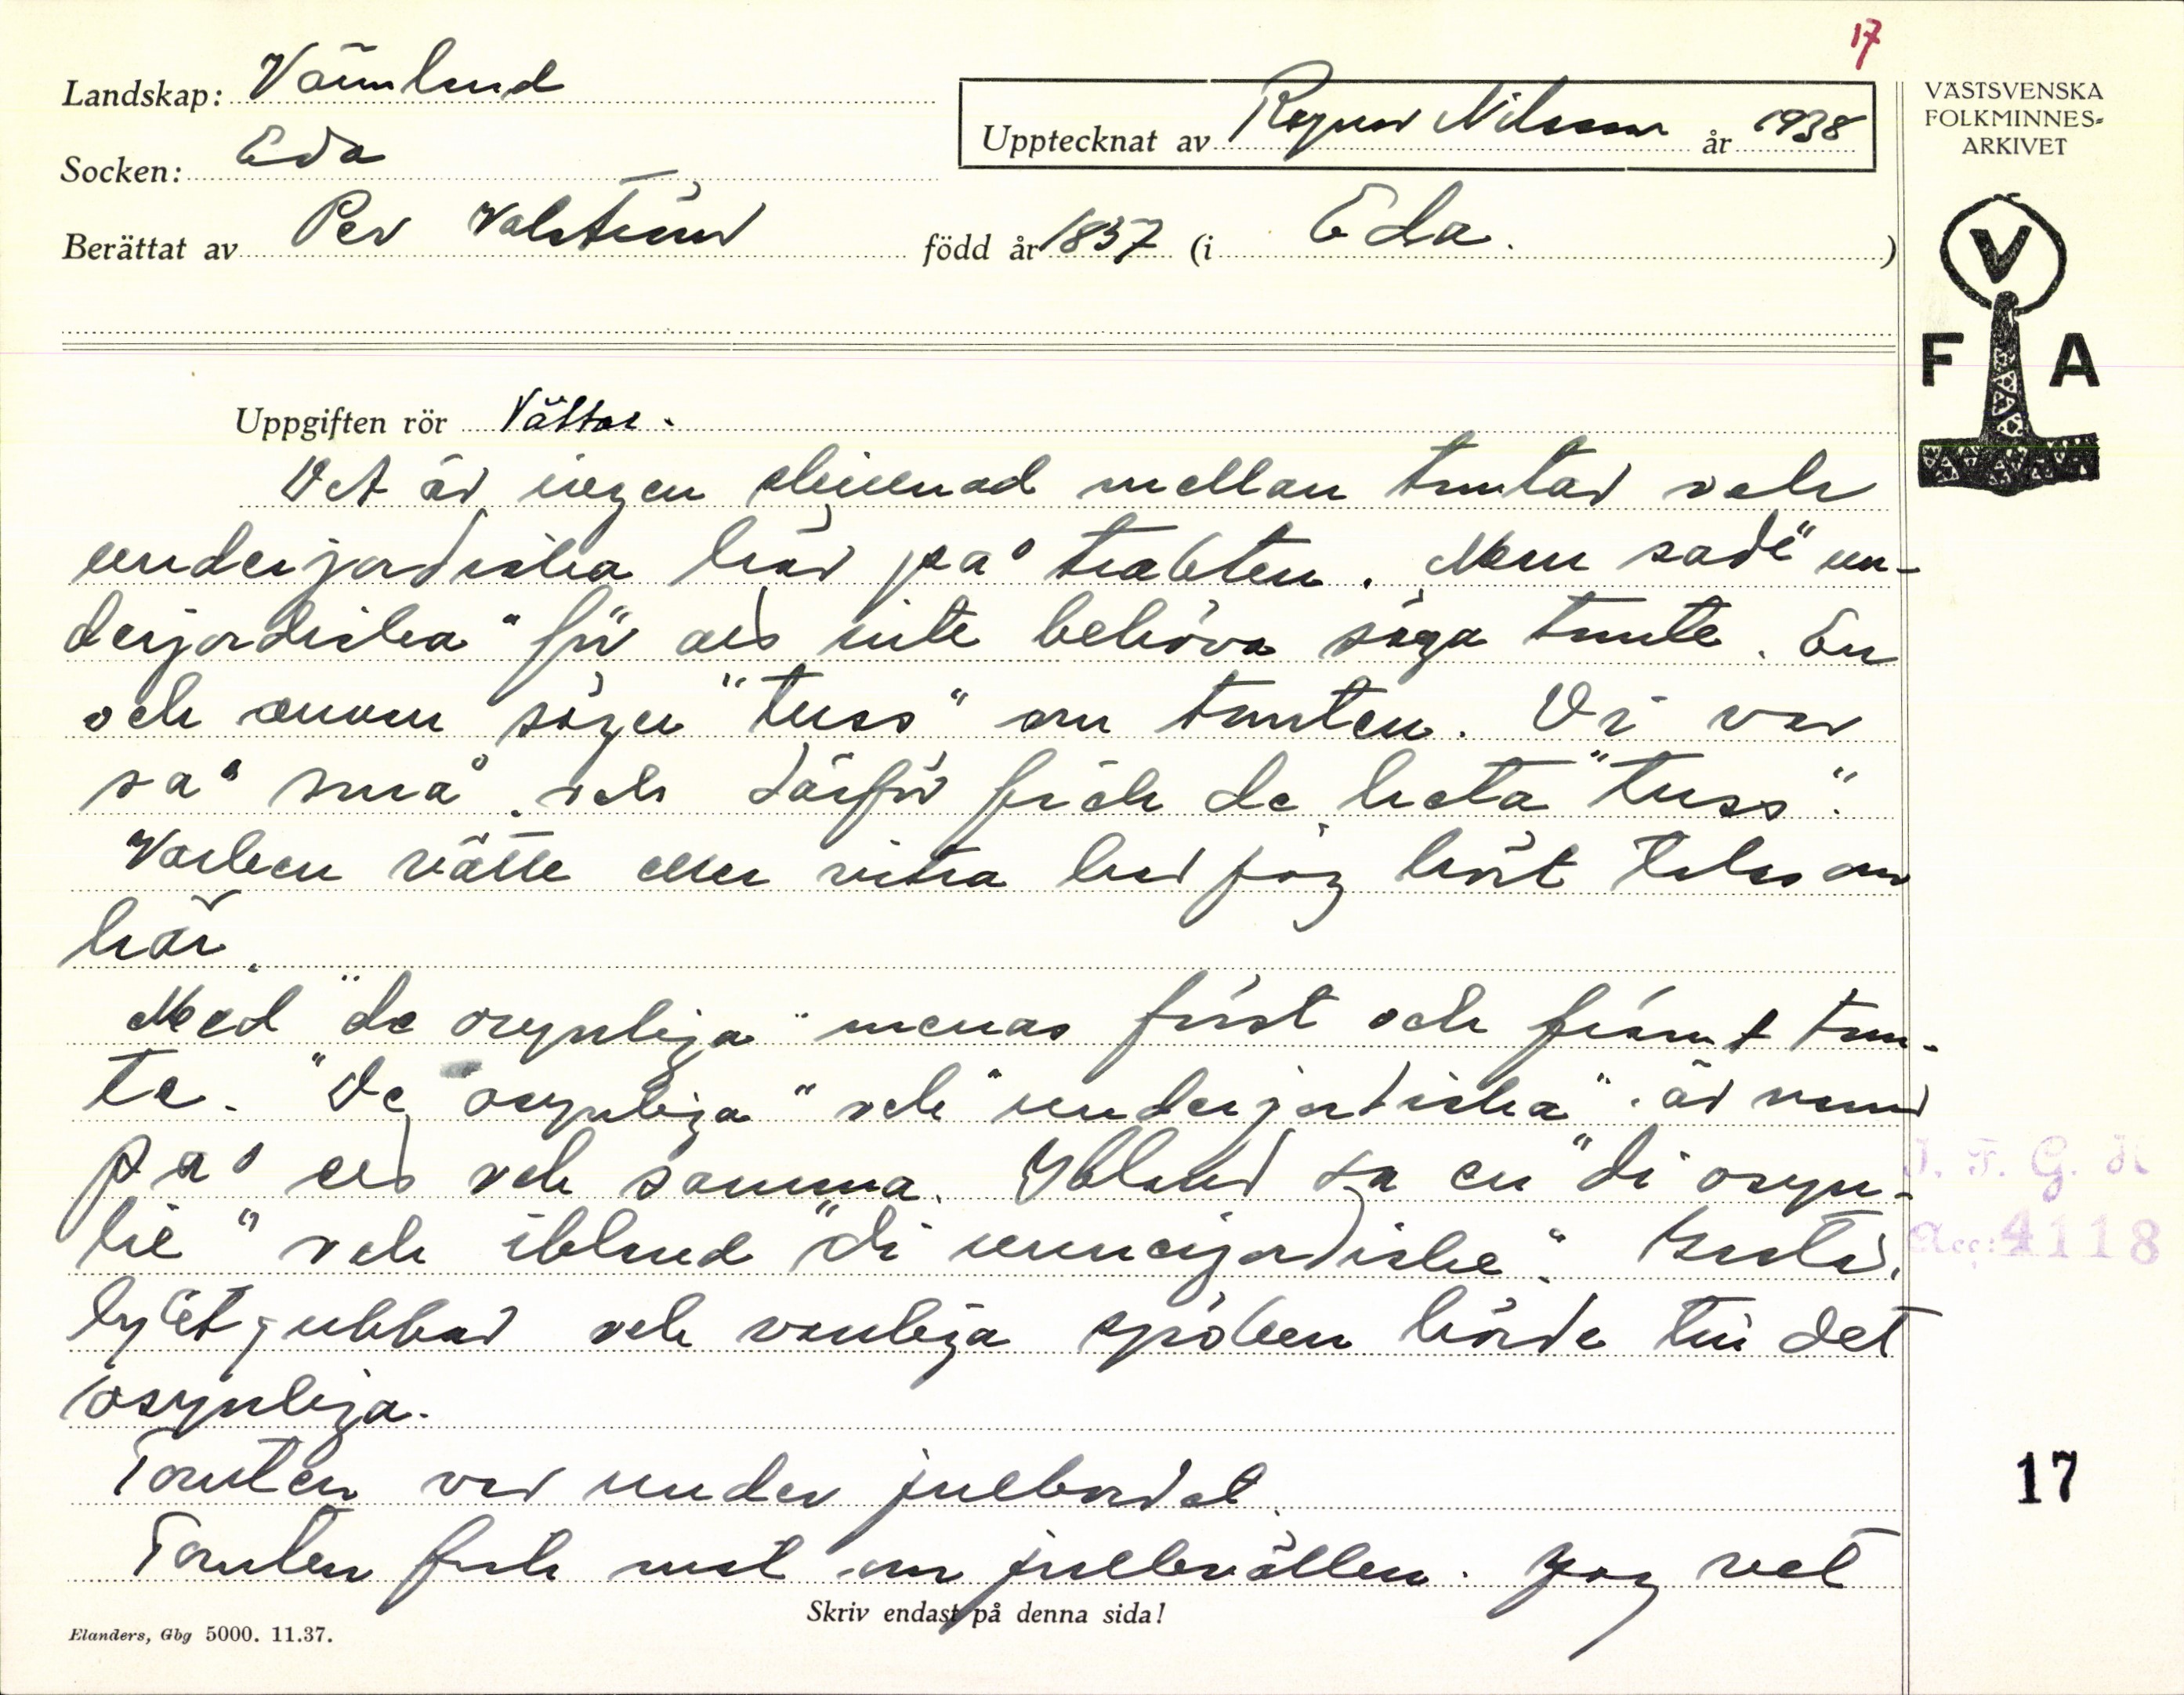 17
Landskap: Värmland
Socken: Eda
Upptecknat av Ragnar Nilsson år 1938
Berättat av Per Valström född år 1857 (i Eda.)
VÄSTSVENSKA
FOLKMINNES-
ARKIVET
V
F A
Uppgiften rör Vättar.
Det är ingen skillnad mellan tomtar och
underjordiska här på trakten. Man sade "un-
derjordiska" för att inte behöva säga tomte. En
och annan säger "tuss" om tomten. De var
så små och därför fick de heta "tuss".
Varken vätte eller vitra har jag hört talas om
här.
Med "de osynliga" menas först och främst tom-
te. "De osynliga" och "underjordiska" är namn
på ett och samma. Ibland sa en "di osyn-
lie" och ibland "di unnerjordiske".
lyktgubbar och vanliga spöken hörde till det
osynliga.
Tomten var under julbordet.
Tomten fick mat om julkvällen. Jag vet
Skriv endast på denna sida!
Elanders, Gbg 5000. 11.37.
I. F. G. H
Acc: 4118
17